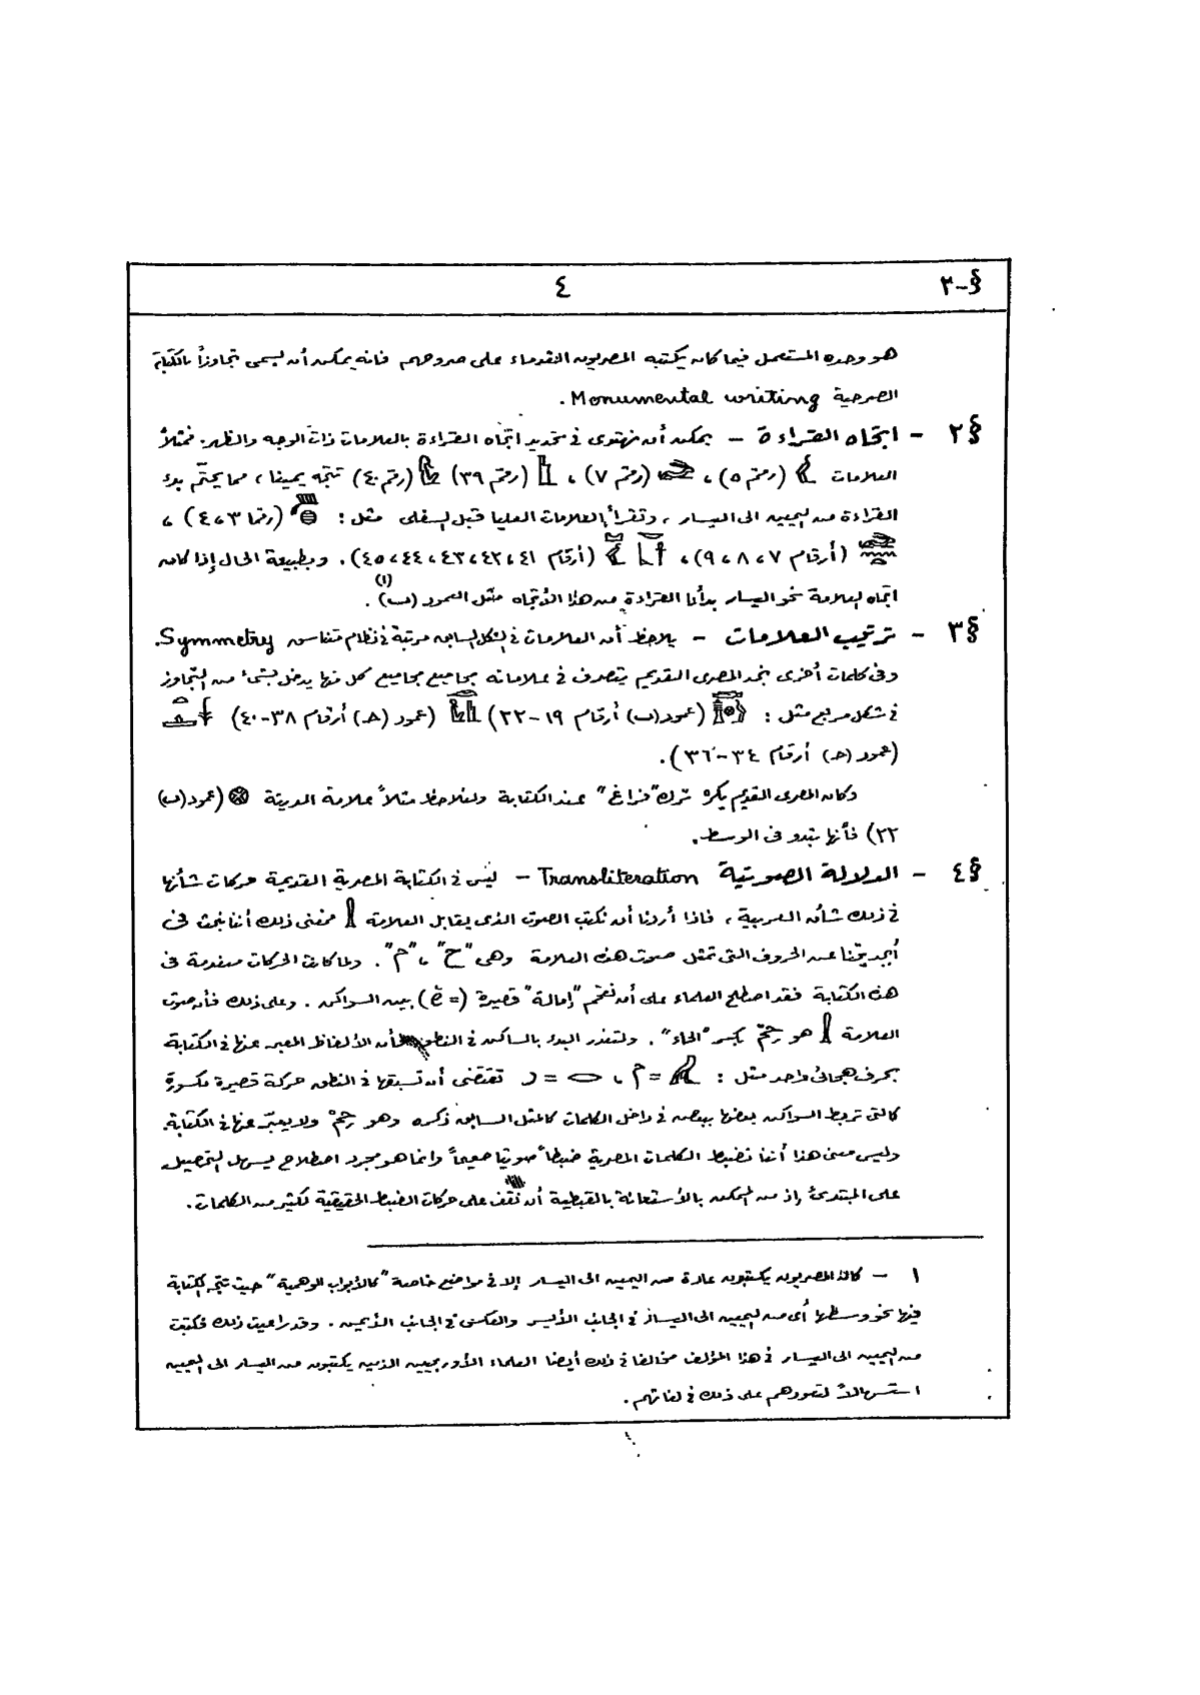 §-٣ ٤
هو وحده المستعمل فيما كان يكتبه المصريون القدماء على صروحهم فانه يمكن أن يسمى تجاوزاً بالكتابة
الصرحية Monumental writing .
§٢ - اتجاه القراءة - يمكن أن نهتدى فى تحديد اتجاه القراءة بالعلامات ذات الوجه والظهر. فمثلاً
العلامات (رقم ٥) ، (رقم ٧) ، (رقم ٣٩) (رقم ٤٠) تتجه يمينا ، مما يحتّم بدء
القراءة من اليمين الى اليسار ، وتقرأ العلامات العليا قبل السفلى مثل : (رقما ٣،٤) ،
(أرقام ٧،٨،٩) ، (أرقام ٤١،٤٢،٤٣،٤٤،٤٥) . وبطبيعة الحال إذا كان
اتجاه العلامة نحو اليسار بدأنا القراءة من هذا الأتجاه مثل العمود (ب) (١) .
§٣ - ترتيب العلامات - يلاحظ أن العلامات فى الشكل السابق مرتبة فى نظام متناسق Symmetry.
وفى كلمات أخرى نجد المصرى القديم يتصرف فى علاماته بجاميع مجاميع كل منها يدخل بشىء من التجاوز
فى شكل مربع مثل : (عمود (ب) أرقام ١٩-٢٢) (عمود (حـ) أرقام ٣٨-٤٠)
(عمود (حـ) أرقام ٣٤-٣٦) .
وكان المصرى القديم يكره ترك "فراغ" عند الكتابة ولنلاحظ مثلاً علامة المدينة (عمود (ب)
٢٢) فأنها تبدو فى الوسط .
§٤ - الدلالة الصوتية Transliteration - ليس فى الكتابة المصرية القديمة حركات شأنها
فى ذلك شأن العربية ، فاذا أردنا أن نكتب الصوت الذى يقابل العلامة فمعنى ذلك أننا نبحث فى
أبجديتنا عن الحروف التى تمثل صوت هذه العلامة وهى "ح" ، "م" . ولما كانت الحركات منعدمة فى
هذه الكتابة فقد اصطلح العلماء على أن نقحم "إمالة" قصيرة (= ĕ) بين السواكن . وعلى ذلك فأن صوت
العلامة هو حِمّ بكسر "الحاء" . ولتعذر البدء بالساكن فى النطق فأن الألفاظ المعبر عنها فى الكتابة
بحرف هجائى واحد مثل : = م ، = ر تقتضى أن تسبقها فى النطق حركة قصيرة مكسورة
كالتى تربط السواكن بعضها ببعض فى داخل الكلمات كالمثل السابق ذكره وهو حِمْ ولا يعبّر عنها فى الكتابة.
وليس معنى هذا أننا نضبط الكلمات المصرية ضبطاً صوتيا صحيحاً وانما هو مجرد اصطلاح يسهل التحصيل
على المبتدئ إذ من الممكن بالأستعانة بالقبطية أن نقف على حركات الضبط الحقيقية لكثير من الكلمات .
١ - كان المصريون يكتبون عادة من اليمين الى اليسار إلا فى مواضع خاصة "كالأبواب الوهمية" حيث تتجه الكتابة
فيها نحو وسطها أى من اليمين الى اليسار فى الجانب الأيسر والعكس فى الجانب الأيمن . وقد راعيت ذلك فكتبت
من اليمين الى اليسار فى هذا المؤلف مخالفا فى ذلك أيضا العلماء الأوربيين الذين يكتبون من اليسار الى اليمين
استسهالاً لتعودهم على ذلك فى لغاتهم .